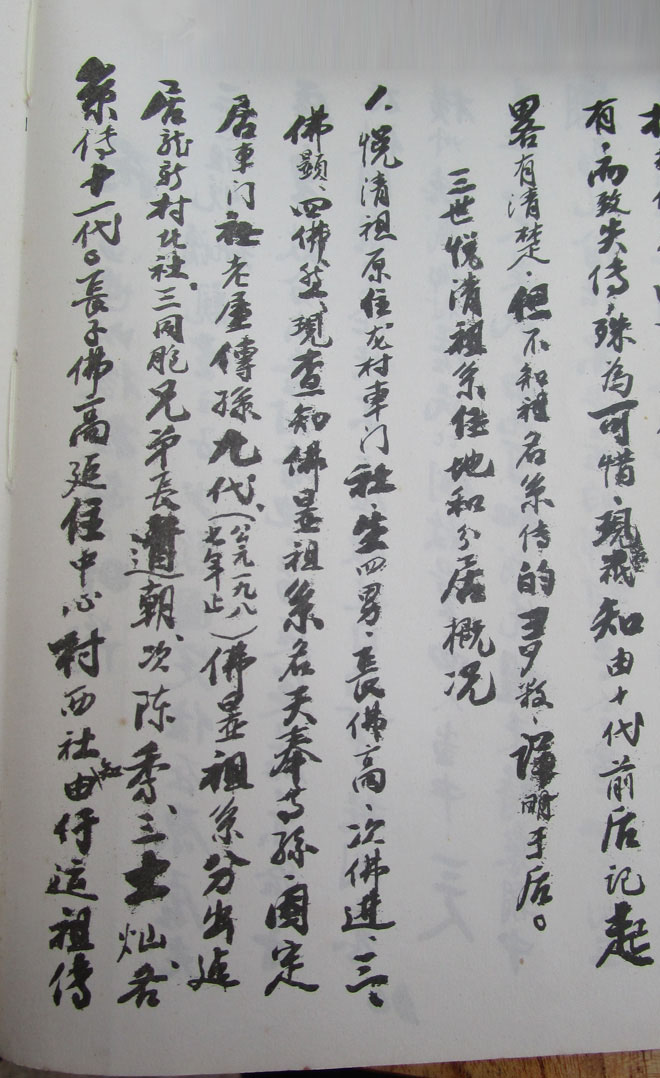 有，而致失传，殊为可惜，现我知由十代前后记起
畧有清楚，但不知祖名系传的多数，谨明于后。
三世悦清祖系住地和分居概况
人悦清祖原住龙村車门社，生四男，長佛高、次佛进、三
佛顯、四佛然，現查知佛显祖系名天奉等孫，固定
居車门社老屋傳孫九代（公元一九八七年止）佛显祖系分出遠
居龙新村北社，三同胞兄弟長道朝、次陈香、三士灿，各
系传十一代。長子佛高延住中心村西社由仔這祖傳